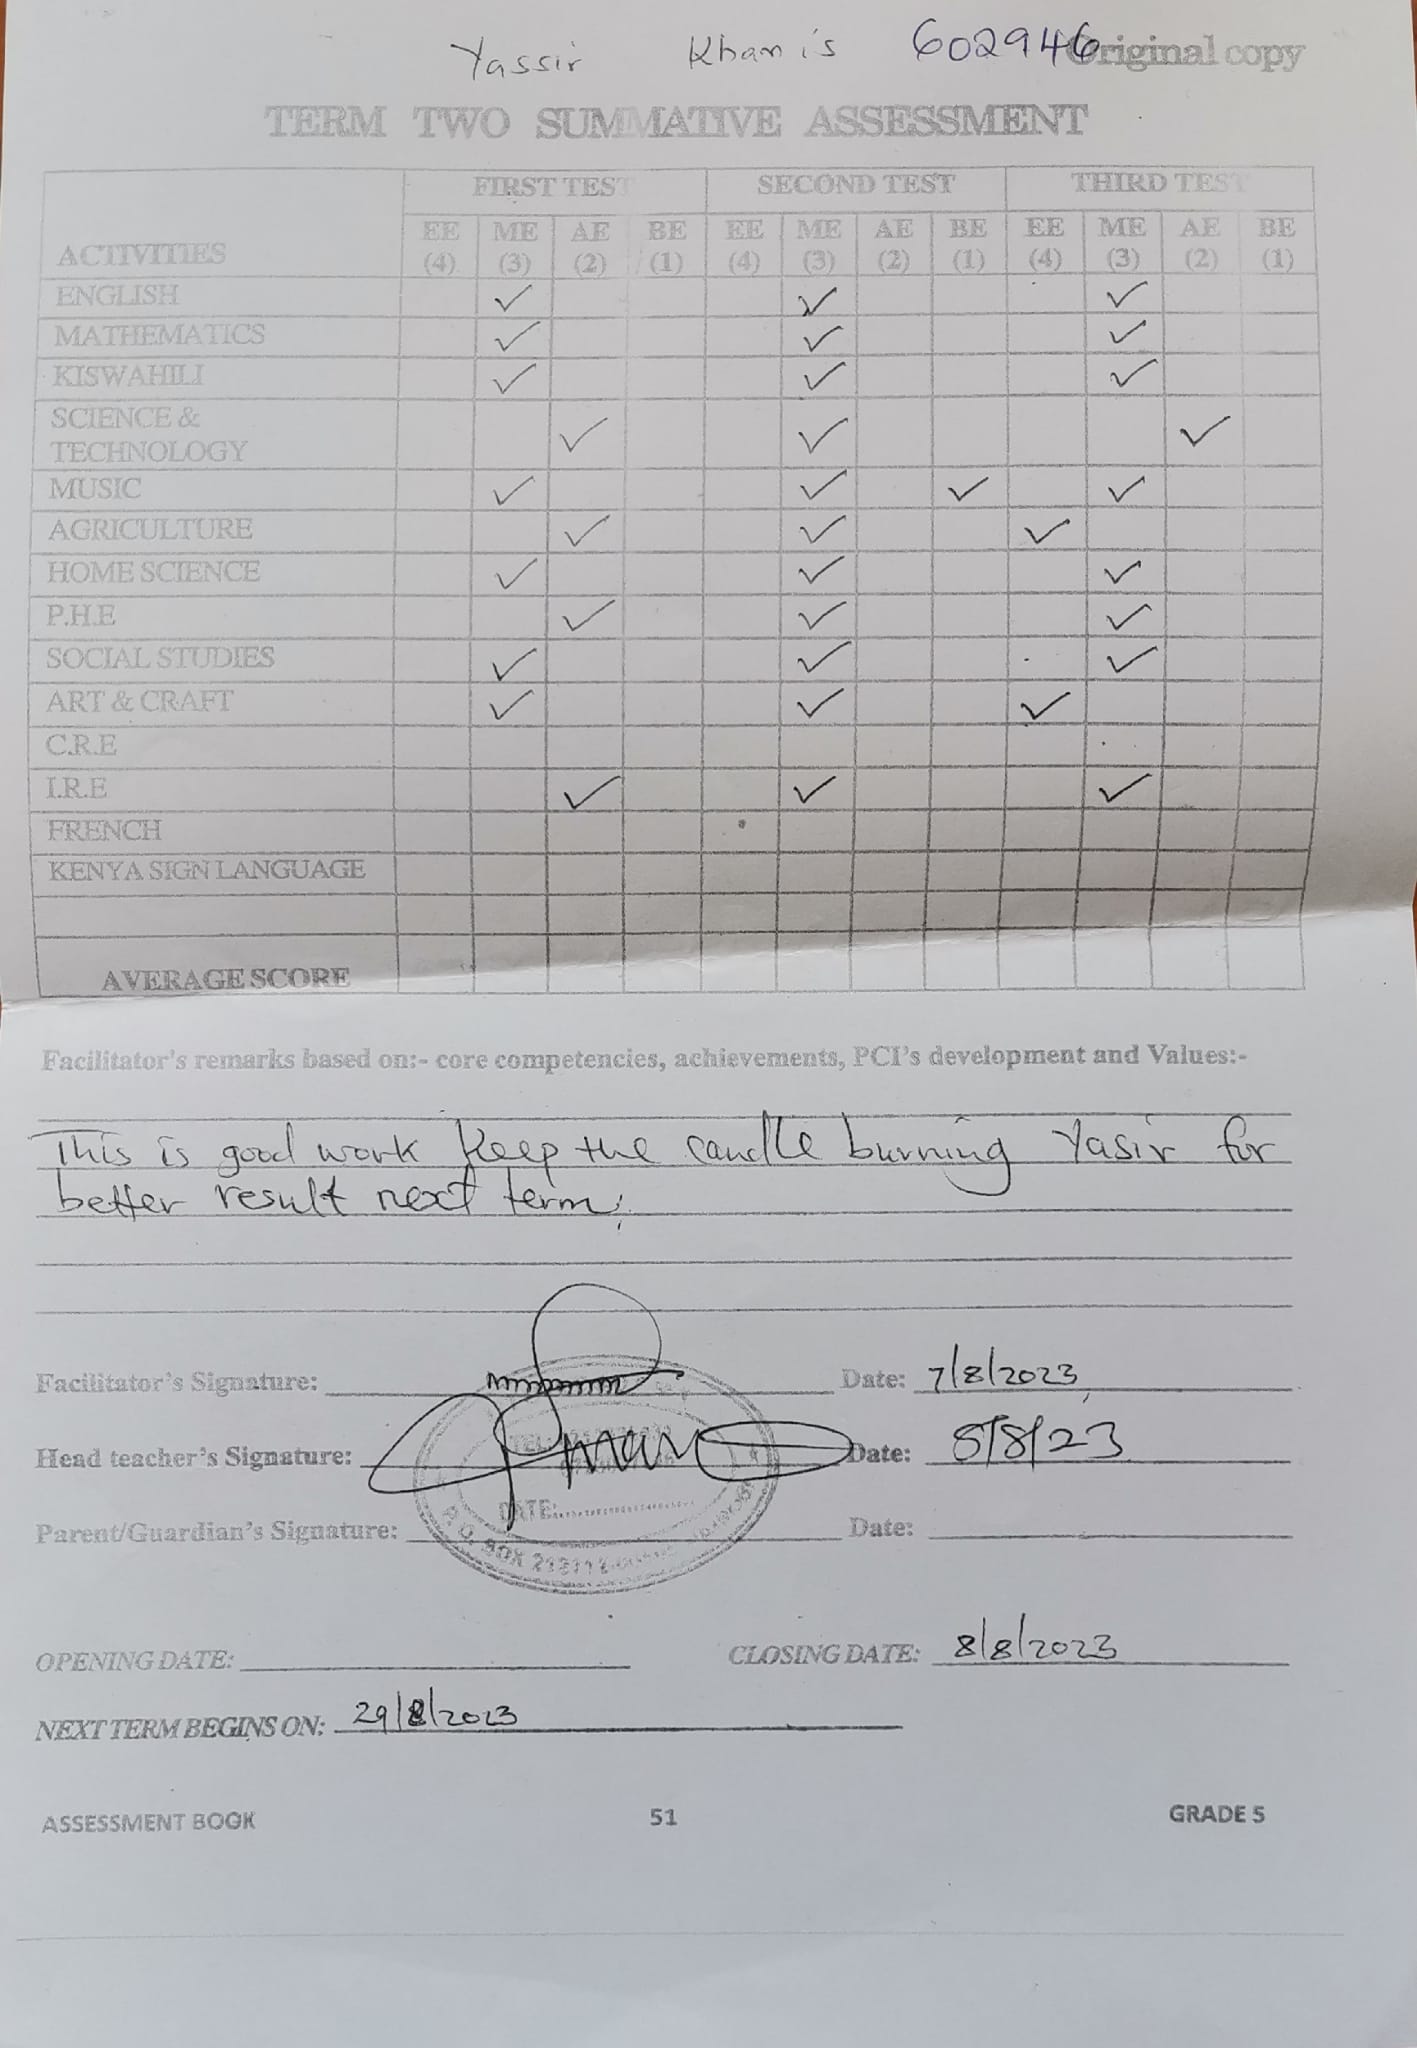 Yassir Khamis 602946 Original copy
TERM TWO SUMMATIVE ASSESSMENT
FIRST TEST SECOND TEST THIRD TEST
ACTIVITIES EE (4) ME (3) AE (2) BE (1) EE (4) ME (3) AE (2) BE (1) EE (4) ME (3) AE (2) BE (1)
ENGLISH ✓ ✓ ✓
MATHEMATICS ✓ ✓ ✓
KISWAHILI ✓ ✓ ✓
SCIENCE &
TECHNOLOGY ✓ ✓ ✓
MUSIC ✓ ✓ ✓ ✓
AGRICULTURE ✓ ✓ ✓
HOME SCIENCE ✓ ✓ ✓
P.H.E ✓ ✓ ✓
SOCIAL STUDIES ✓ ✓ ✓
ART & CRAFT ✓ ✓ ✓
C.R.E
I.R.E ✓ ✓ ✓
FRENCH
KENYA SIGN LANGUAGE
AVERAGE SCORE
Facilitator's remarks based on:- core competencies, achievements, PCI's development and Values:-
This is good work Keep the candle burning Yasir for
better result next term.
Facilitator's Signature: Date: 7/8/2023
Head teacher's Signature: Date: 8/8/23
DATE:
Parent/Guardian's Signature: Date:
P.O. BOX
OPENING DATE: CLOSING DATE: 8/8/2023
NEXT TERM BEGINS ON: 29/8/2023
ASSESSMENT BOOK 51 GRADE 5